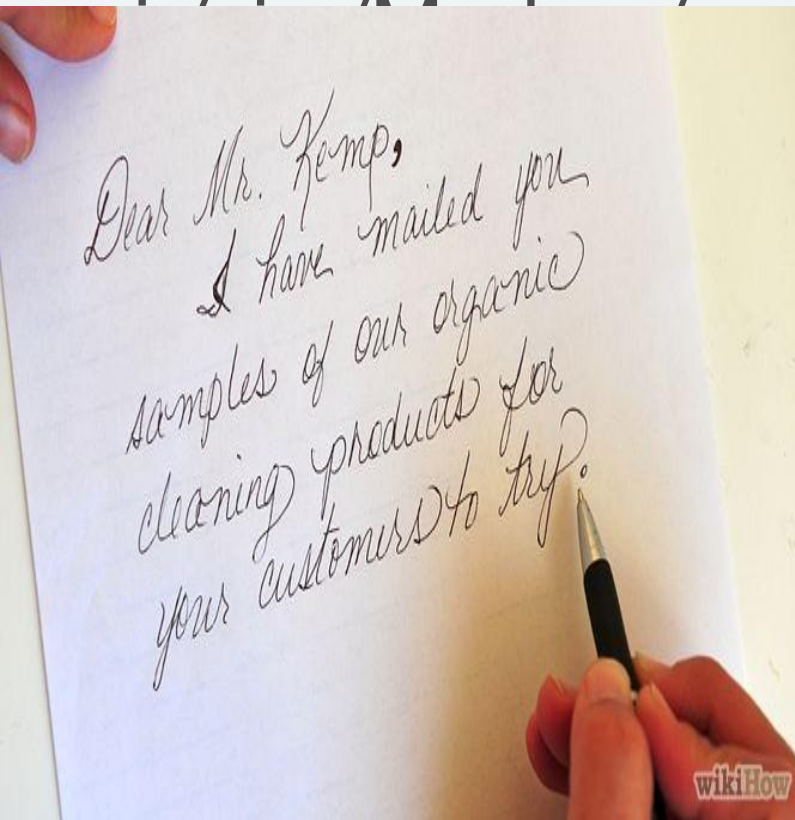 Dear Mr. Kemp,
I have mailed you
samples of our organic
cleaning products for
your customers to try.
wikiHow